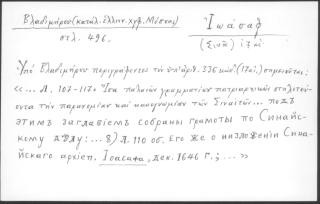 Βλαδιμήρου (κατάλ. ἑλλην. χφ. Μόσχας)
σελ. 496.
Ἰωάσαφ
(Σινᾶ) ιζ´ αἰ
Ὑπὸ Βλαδιμήρου περιγράφεται τὸ ὑπ' ἀριθ. 336 κῶδ. (17 αἰ.) σημειοῦται:
«... Л. 107-117 Ἴσα παλαιῶν γραμματίων πατριαρχικῶν στηλιτεύ-
οντα τὴν παρανομίαν καὶ κακογνωμίαν τῶν Σιναϊτῶν ... подъ
этимъ заглавіемъ собраны грамоты по Синай-
скому дѣлу: ... 8) Л. 110 об. Его же о низложеніи Сина-
йскаго архіеп. Іоасафа, дек. 1646 г.; ... »